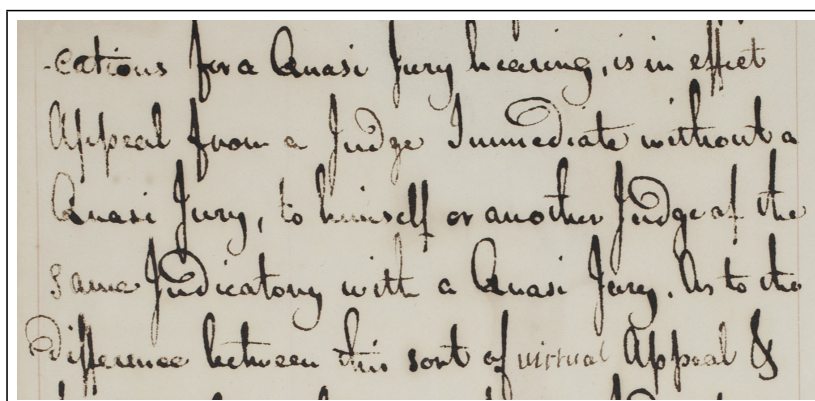 -cations for a Quasi Jury hearing, is in effect
Appeal from a Judge Immediate without a
Quasi Jury, to himself or another Judge of the
same Judicatory with a Quasi Jury. As to the
difference between this sort of virtual Appeal &